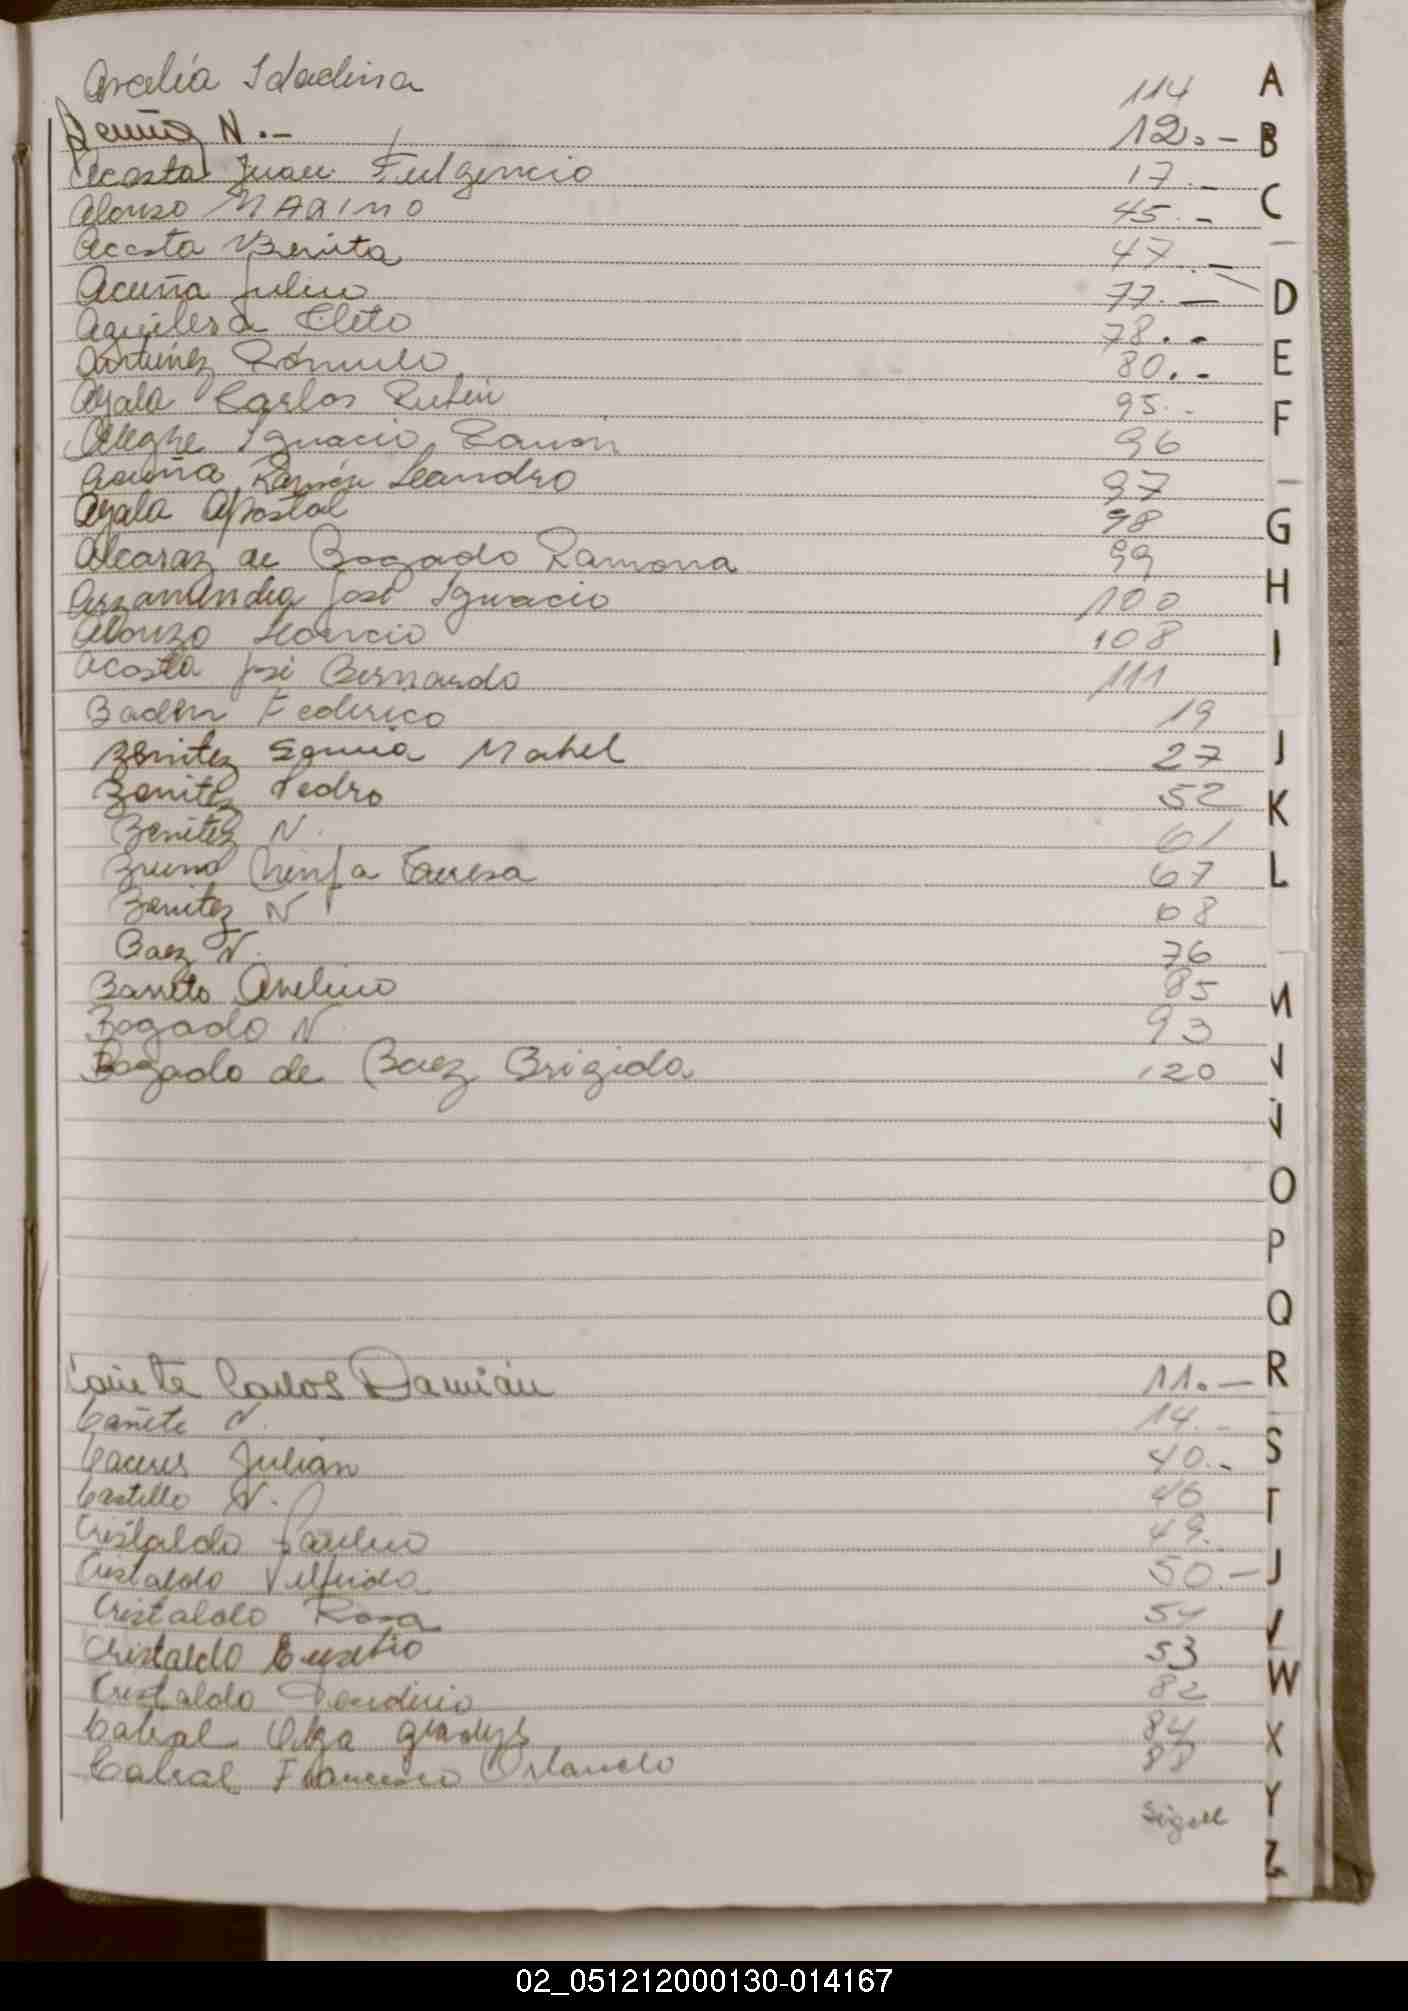 Arcelia Idadina 114
Acuña N.- 12.-
Acosta Juan Fulgencio 17.-
Alonso MAXIMO 45.-
Acosta Benita 47.-
Acuña Julio 77.-
Aguilera Cleto 78.-
Antunez Rómulo 80.-
Ayala Carlos Rubén 95.-
Alegre Ignacio Ramón 96
Acuña Ramón Leandro 97
Ayala Apostal 98
Alcaraz de Bogado Ramona 99
Arzamendia José Ignacio 100
Alonzo Leoncio 108
Acosta José Bernardo 111
Baden Federico 19
Benitez Sonnia Mabel 27
Benitez Pedro 52
Benitez N. 61
Bruno Chinfa Teresa 67
Benitez N 68
Baez N. 76
Barreto Avelino 85
Bogado N. 93
Bogado de Baez Brigida 120
Cañete Carlos Damián 11.-
Cañete N. 14.-
Caceres Julián 40.-
Castillo N. 46
Cristaldo Paulino 49.
Cristaldo Vilfrido 50.-
Cristaldo Rosa 51
Cristaldo Eusebio 53
Cristaldo 82
Cabral Olga Gladys 84
Cabral Francisco Orlando 88
sigue
A
B
C
D
E
F
G
H
I
J
K
L
M
N
O
P
Q
R
S
T
V
W
X
Y
Z
02_051212000130-014167